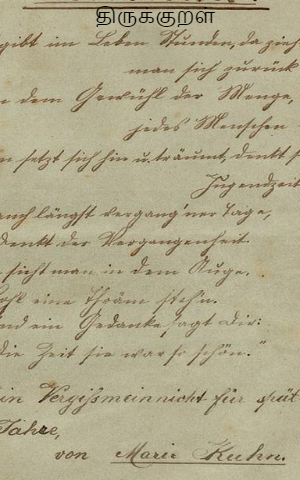 திருக்குறள்
gibt im Leben Stunden, da zieh
man sich zurück
dem Gewühl der Menge,
jedes Menschen
setzt sich hin u. träumt, denkt
Jugendzeit
auch längst vergang'ner Tage,
denkt der Vergangenheit.
sieht man in dem Auge.
eine Thräne steh'n.
und ein Gedanke sagt Dir:
die Zeit sie war so schön."
ein Vergißmeinnicht für spät
Jahre,
von Marie Kuhn.